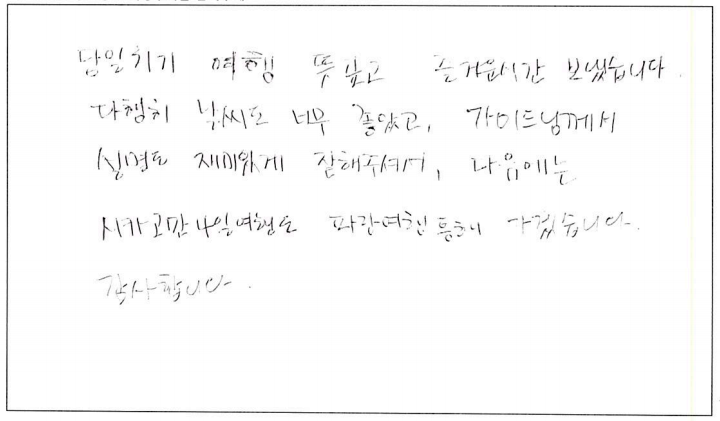 당일치기 여행 뜻깊고 즐거운시간 보냈습니다.
다행히 날씨도 너무 좋았고, 가이드님께서
설명도 재미있게 잘해주셔서, 다음에는
시카고 4일여행도 파랑여행 통해 가겠습니다.
감사합니다.